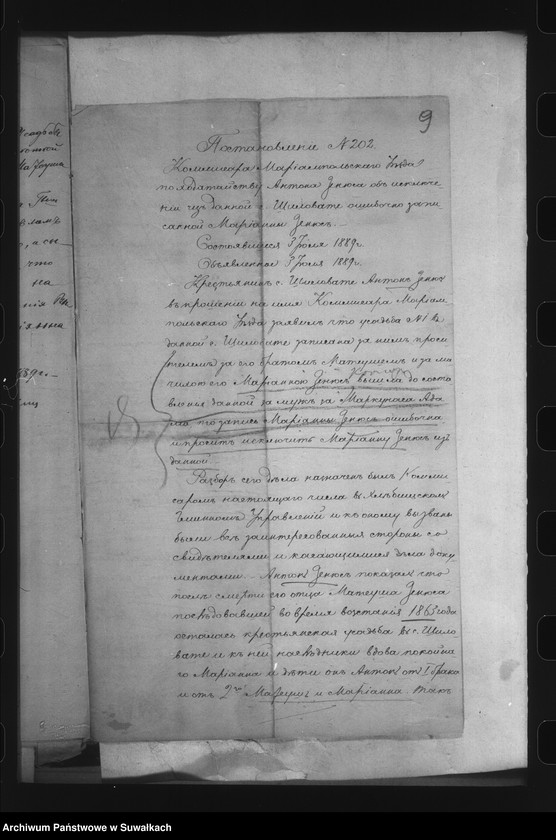 9
Постановленіе N 202.
Коммисара Маріампольскаго Уѣзда
по ходатайству Антона Зенюса объ исключе-
ніи изъ данной с. Шиловате ошибочно запи-
санной Маріанны Зенюсъ.
Состоявшееся 3 Іюля 1889 г.
Объявленное 3 Іюля 1889 г.
Крестьянинъ с. Шиловате Антонъ Зенюсъ
въ прошеніи на имя Коммисара Маріам-
польскаго Уѣзда заявилъ что усадьба N 1 въ
данной с. Шиловате записана за нимъ проси
телемъ за его братомъ Матеушемъ и за ма
чихою его Маріанною Зенюсъ вышла до соста
вленія данной за мужъ за Маркунаса Ада
ма по запись Маріанны Зенюсъ ошибочна
и проситъ исключить Маріанну Зенюсъ изъ
данной.
Разборъ сего дѣла назначенъ былъ Комми
саромъ настоящаго числа въ
Гминномъ Управленіи и къ оному вызваны
были всѣ заинтересованныя стороны со
свидѣтелями и касающимися дѣла доку
ментами. Антонъ Зенюсъ показалъ что
послѣ смерти его отца Матеуша Зенюса
послѣдовавшей во время возстанія 1863 года
осталась крестьянская усадьба въ с. Шило
вате и къ ней наслѣдники вдова покойна
го Маріанна и дѣти онъ Антонъ отъ I брака
и отъ 2го Матеушъ и Маріанна. Такъ
1889 г.
Archiwum Państwowe w Suwałkach